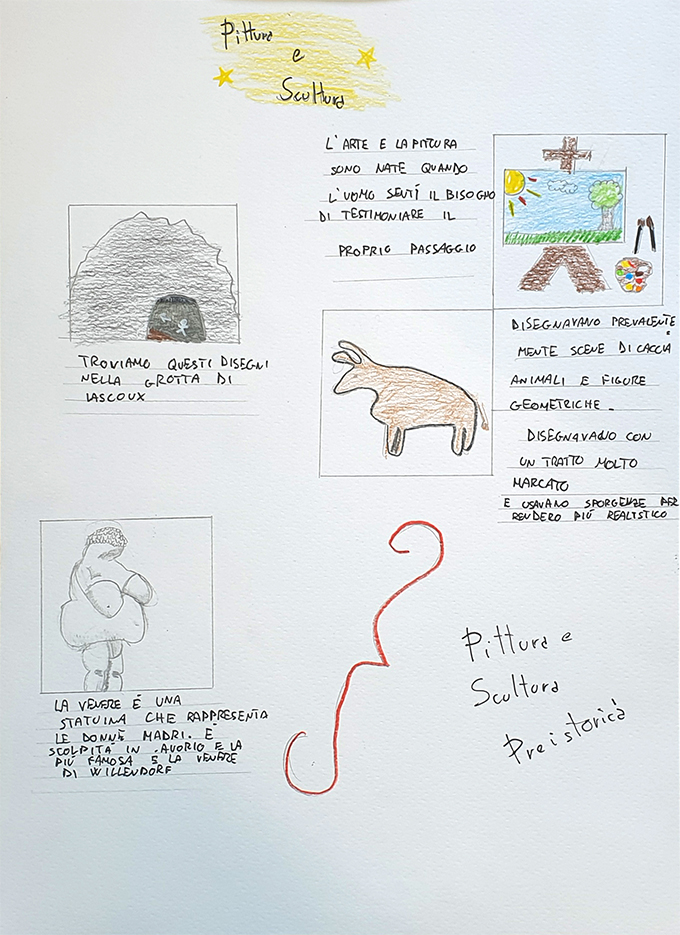 Pittura
e
Scultura
L'ARTE E LA PITTURA
SONO NATE QUANDO
L'UOMO SENTÍ IL BISOGNO
DI TESTIMONIARE IL
PROPRIO PASSAGGIO
TROVIAMO QUESTI DISEGNI
NELLA GROTTA DI
LASCOUX
DISEGNAVANO PREVALENTE
MENTE SCENE DI CACCIA
ANIMALI E FIGURE
GEOMETRICHE.
DISEGNAVANO CON
UN TRATTO MOLTO
MARCATO
E USAVANO SPORGENZE PER
RENDERO PIÚ REALISTICO
LA VENERE É UNA
STATUINA CHE RAPPRESENTA
LE DONNE MADRI. É
SCOLPITA IN AVORIO E LA
PIÚ FAMOSA É LA VENERE
DI WILLENDORF
Pittura e
Scultura
Preistorica